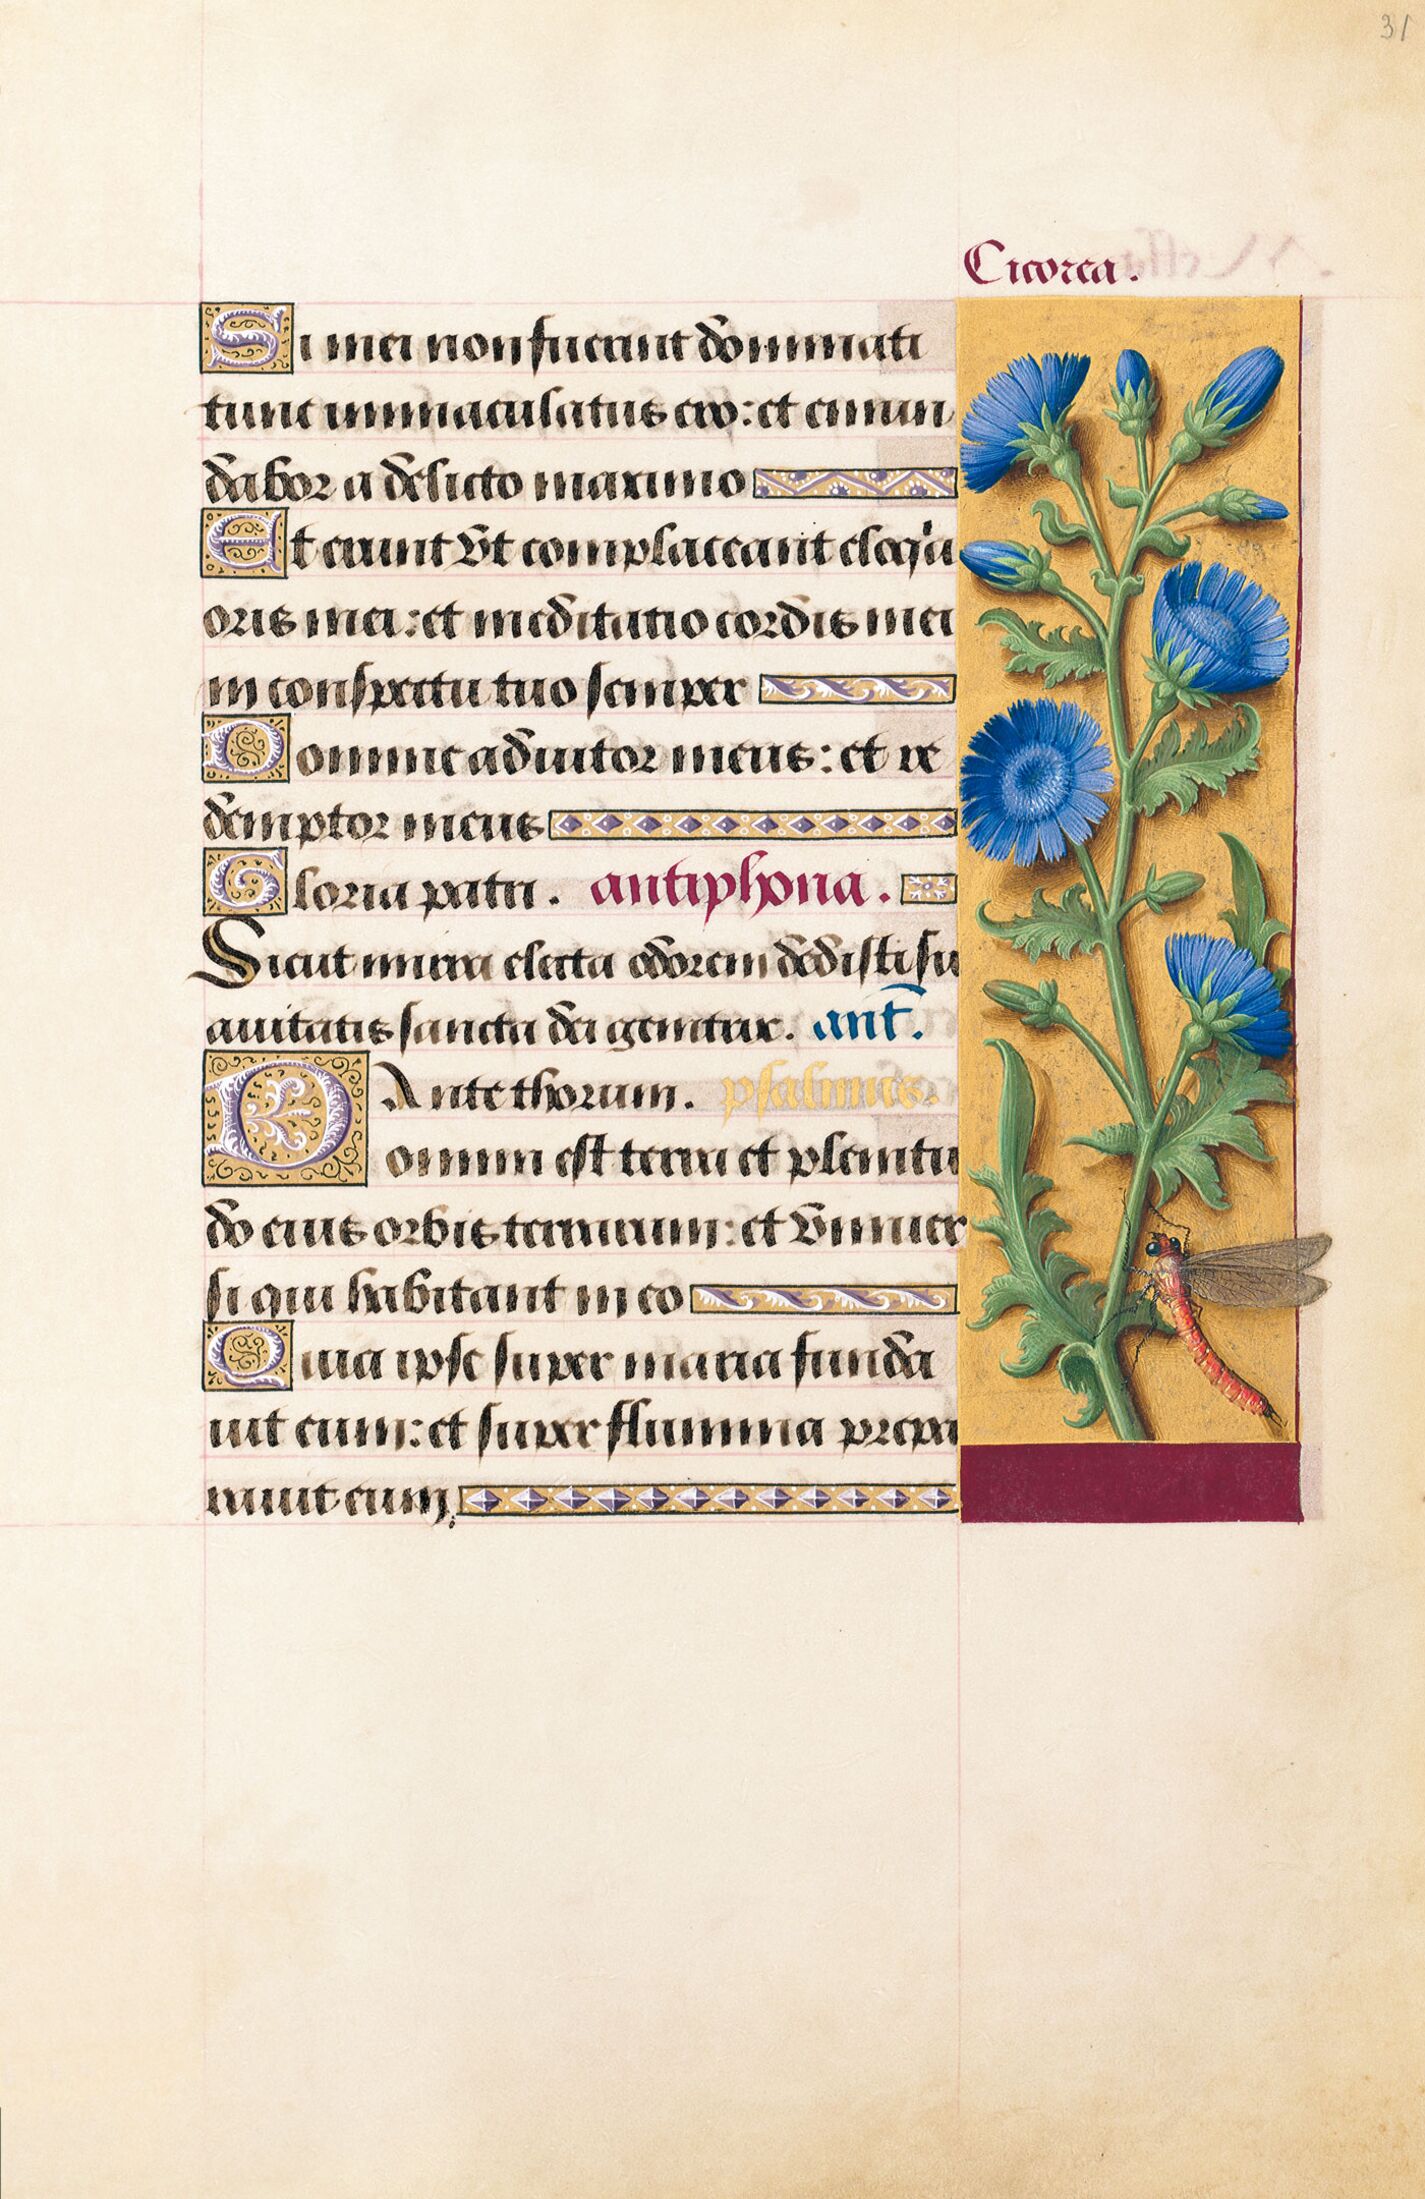 31
Cicorea.
Si mei non fuerint dominati
tunc immaculatus ero: et emun
dabor a delicto maximo
Et erunt vt complaceant eloq'a
oris mei: et meditatio cordis mei
in conspectu tuo semper
Domine adiutor meus: et re
demptor meus
Gloria patri. antiphona.
Sicut mirra electa odorem dedisti su
auitatis sancta dei genitrix. ant̄.
Ante thorum. psalmus.
Domini est terra et plenitu
do eius orbis terrarum: et vniuer
si qui habitant in eo
Quia ipse super maria funda
uit eum: et super flumina prepa
rauit eum.